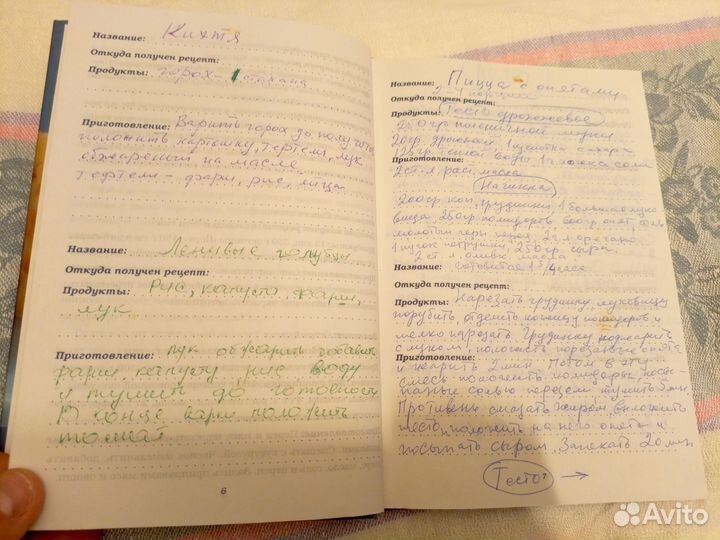 Название: Кихтя
Откуда получен рецепт:
Продукты: горох - 1 стакана
Приготовление: Варить горох до полу готов
положить картошку, тефтели, лук
обжаренный на масле.
тефтели - фарш, рис, яйцо
Название: Ленивые голубцы
Откуда получен рецепт:
Продукты: Рис, капуста, фарш,
лук
Приготовление: лук обжарить добавить
фарш капусту рис воду
и тушить до готовности
В конце варки положить
томат
6
Название: Пицца с опятами
Откуда получен рецепт:
Продукты: Тесто дрожжевое
250 гр. пшеничной муки
20 гр. дрожжей, 1 щепотка сахара
125 гр. теплой воды, 1 ложка соли
Приготовление:
2 ст. л. раст. масла
Начинка
200 гр. коп. грудинки, 1 большая луко
вица, 250 гр. помидоров 600 гр. опят, соль
молотый черн перец, 2 ч л орегано
1 пучок петрушки, 250 гр. сыра
2 ст. л. оливк. масла
Название: готовится 1 3/4 часа
Откуда получен рецепт:
Продукты: Нарезать грудинку, луковицу
порубить, отделить кожицу помидоров и
мелко нарезать. Грудинку поджарить
с луком, положить порезанные опята
Приготовление:
и жарить 2 мин. Потом в эту
смесь положить помидоры, посы-
панные солью перцем, тушить 5 мин.
Противень смазать жиром, выложить
тесто, положить на него опята и
посыпать сыром. Запекать 20 мин
Тесто: →
Avito